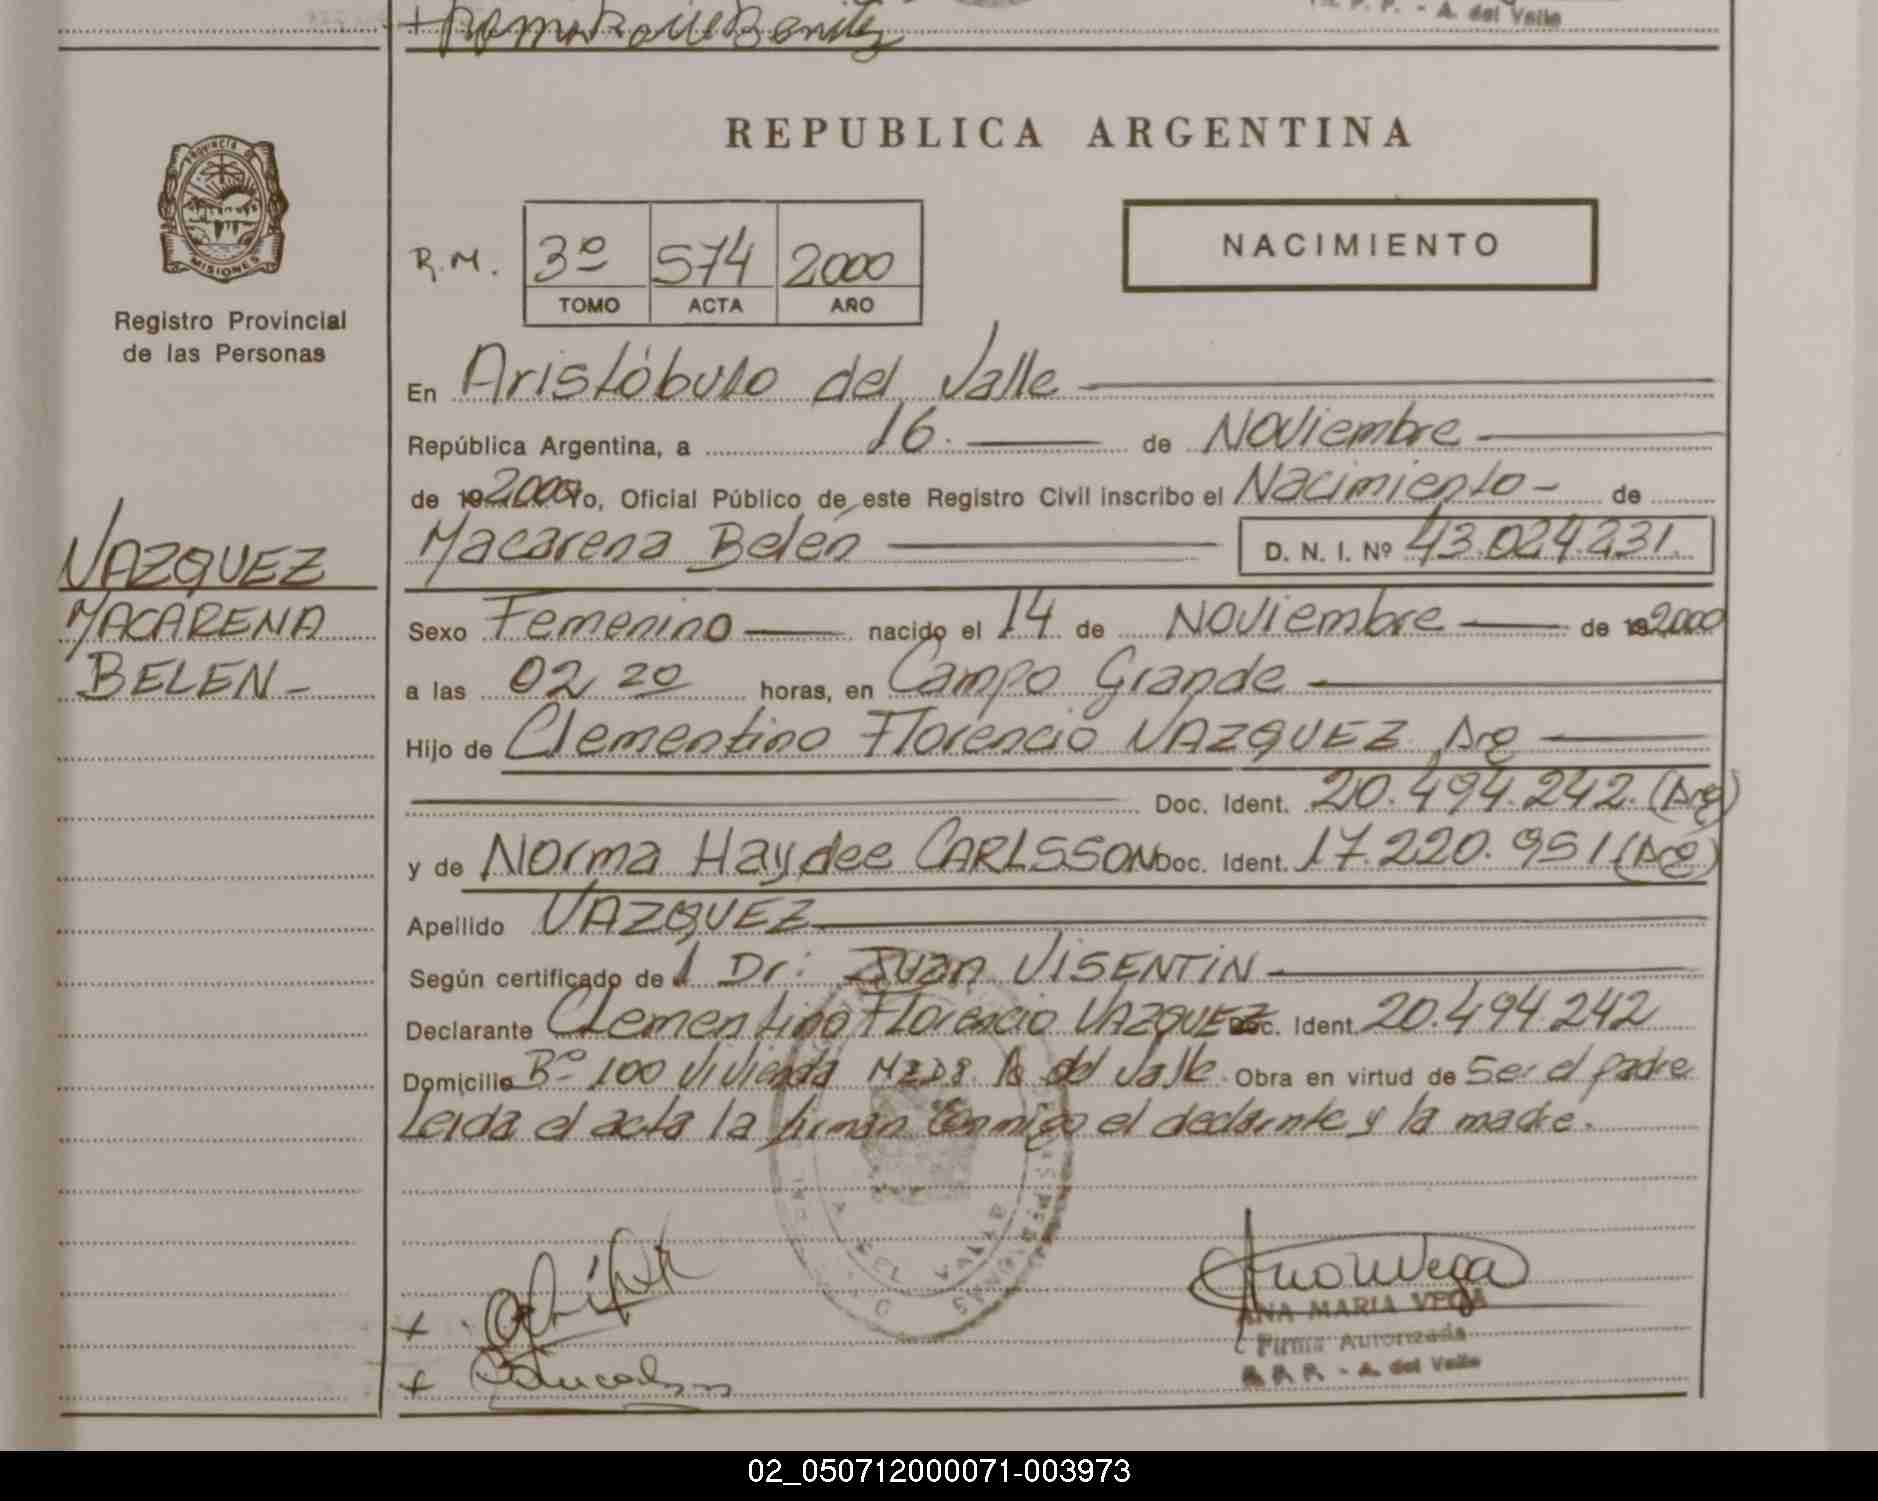 R. P. P. - A. del Valle
REPUBLICA ARGENTINA
PROVINCIA DE
MISIONES
Registro Provincial
de las Personas
R.M. 3º 574 2000
TOMO ACTA AÑO
NACIMIENTO
En Aristóbulo del Valle
República Argentina, a 16. de Noviembre
de 19 2000 Yo, Oficial Público de este Registro Civil inscribo el Nacimiento - de
Macarena Belén D. N. I. Nº 43.024.231
VAZQUEZ
MACARENA
BELEN -
Sexo Femenino nacido el 14 de Noviembre de 19 2000
a las 02 20 horas, en Campo Grande
Hijo de Clementino Florencio VAZQUEZ Arg
Doc. Ident. 20.494.242. (Arg)
y de Norma Haydee CARLSSON Doc. Ident. 17.220.951 (Arg)
Apellido VAZQUEZ
Según certificado de l Dr: Juan VISENTIN
Declarante Clementino Florencio VAZQUEZ Doc. Ident. 20.494.242
Domicilio Bº 100 Vivienda A del Valle. Obra en virtud de Ser el padre
Leida el acta la firman conmigo el declarante y la madre.
A. DEL VALLE
MISIONES
ANA MARIA VEGA
Firma Autorizada
R. P. P. - A. del Valle
02_050712000071-003973